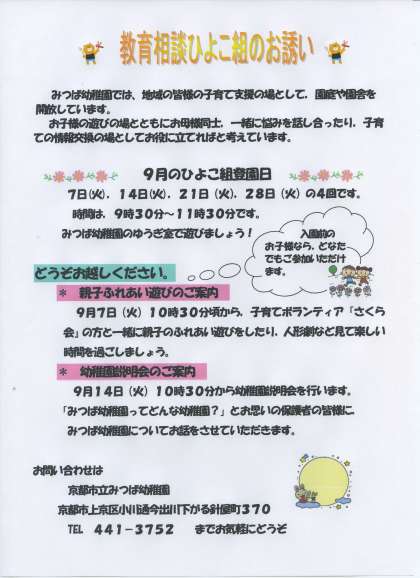 教育相談ひよこ組のお誘い
みつば幼稚園では、地域の皆様の子育て支援の場として、園庭や園舎を
開放しています。
お子様の遊びの場とともにお母様同士、一緒に悩みを話し合ったり、子育
ての情報交換の場としてお役に立てればと考えています。
9月のひよこ組登園日
7日(火)、14日(火)、21日(火)、28日(火)の4回です。
時間は、9時30分～11時30分です。
みつば幼稚園のゆうぎ室で遊びましょう！
入園前の
お子様なら、どなた
でもご参加いただけ
ます。
どうぞお越しください。
＊ 親子ふれあい遊びのご案内
9月7日（火）10時30分頃から、子育てボランティア「さくら
会」の方と一緒に親子のふれあい遊びをしたり、人形劇など見て楽しい
時間を過ごしましょう。
＊ 幼稚園説明会のご案内
9月14日（火）10時30分から幼稚園説明会を行います。
「みつば幼稚園ってどんな幼稚園？」とお思いの保護者の皆様に、
みつば幼稚園についてお話をさせていただきます。
お問い合わせは
京都市立みつば幼稚園
京都市上京区小川通今出川下がる針屋町370
TEL 441-3752 までお気軽にどうぞ